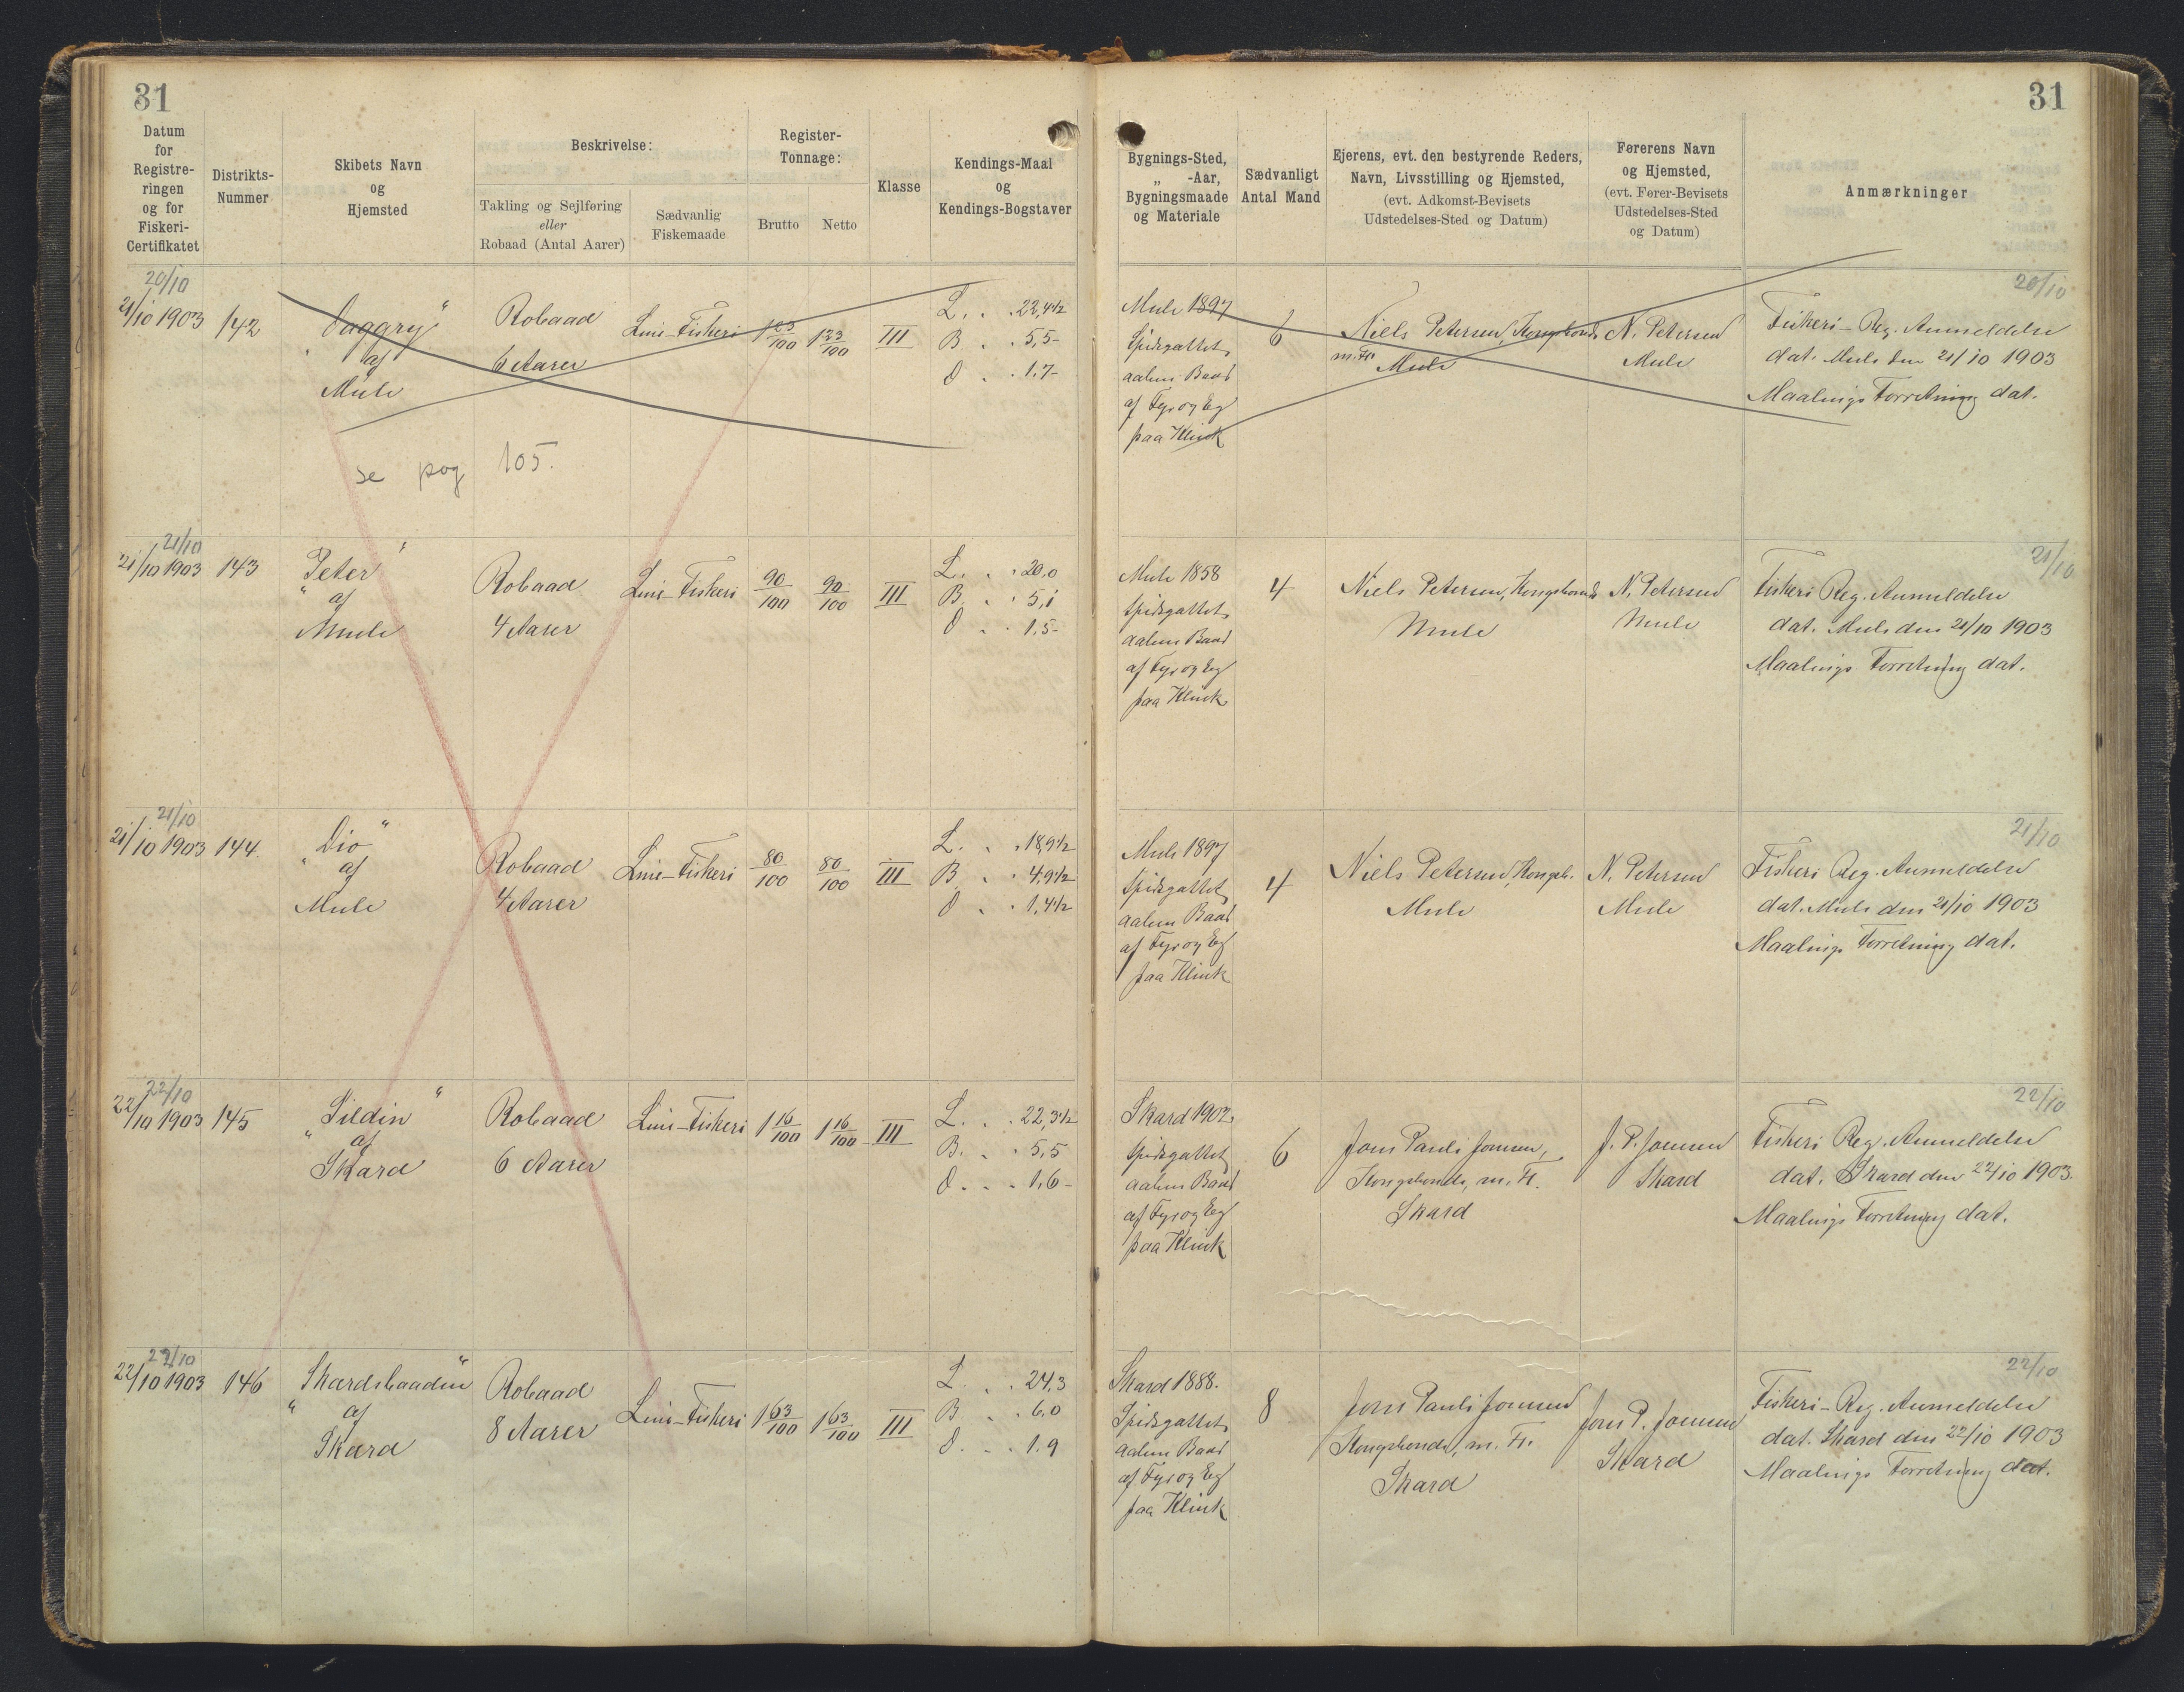 31
31
Datum
for
Registre-
ringen
og for
Fiskeri-
Certifikatet
Distrikts-
Nummer
Skibets Navn
og
Hjemsted
Beskrivelse:
Takling og Sejlføring
eller
Robaad (Antal Aarer)
Sædvanlig
Fiskemaade
Register-
Tonnage:
Brutto
Netto
Klasse
Kendings-Maal
og
Kendings-Bogstaver
Bygnings-Sted,
„ -Aar,
Bygningsmaade
og Materiale
Sædvanligt
Antal Mand
Ejerens, evt. den bestyrende Reders,
Navn, Livsstilling og Hjemsted,
(evt. Adkomst-Bevisets
Udstedelses-Sted og Datum)
Førerens Navn
og Hjemsted,
(evt. Fører-Bevisets
Udstedelses-Sted
og Datum)
Anmærkninger
20/10
21/10 1903
142
„Daggry“
af
Mule
Robaad
6 Aarer
Line-Fiskeri
1 23/100
1 23/100
III
L. . . 22,4½
B. . . 5,5-
D . . 1.7-
Mule 1897
Spidsgattet,
aaben Baad
af Fyr og Eg
paa Klink
6
Niels Petersen, Kongsbonde
m. Fl.
Mule
N. Petersen
Mule
20/10
Fiskeri-Reg. Anmeldelse
dat. Mule den 21/10 1903
Maalings Forretning dat.
se pag 105.
21/10
21/10 1903
143
„Peter“
af
Mule
Robaad
4 Aarer
Line-Fiskeri
90/100
90/100
III
L. . . 20,0
B. . . 5,1
D . . 1.5-
Mule 1858
Spidsgattet,
aaben Baad
af Fyr og Eg
paa Klink
4
Niels Petersen, Kongsbonde
Mule
N. Petersen
Mule
21/10
Fiskeri Reg. Anmeldelse
dat. Mule den 21/10 1903
Maalings Forretning dat.
21/10
21/10 1903
144
„Dio“
af
Mule
Robaad
4 Aarer
Line-Fiskeri
80/100
80/100
III
L. . . 18,9½
B . . 4,9½
D . . 1,4½
Mule 1897
Spidsgattet,
aaben Baad
af Fyr og Eg
paa Klink
4
Niels Petersen, Kongsb.
Mule
N. Petersen
Mule
21/10
Fiskeri Reg. Anmeldelse
dat. Mule den 21/10 1903
Maalings Forretning dat.
22/10
22/10 1903
145
„Sildin“
af
Skard
Robaad
6 Aarer
Line-Fiskeri
1 16/100
1 16/100
III
L. . . 22,3½
B. . . 5,5
D. . . 1,6-
Skard 1902
Spidsgattet,
aaben Baad
af Fyr og Eg
paa Klink
6
Jens Pauli Joensen,
Kongsbonde, m. Fl.
Skard
J. P. Joensen
Skard
22/10
Fiskeri Reg. Anmeldelse
dat. Skard den 22/10 1903.
Maalings Forretning dat.
22/10
22/10 1903
146
„Skardsbaadin“
af
Skard
Robaad
8 Aarer
Line-Fiskeri
1 63/100
1 63/100
III
L . . 24,3
B . . 6,0
D. . . 1.9
Skard 1888.
Spidsgattet,
aaben Baad
af Fyr og Eg
paa Klink
8
Jens Pauli Joensen
Kongsbonde, m. Fl.
Skard
Jens P. Joensen
Skard
22/10
Fiskeri-Reg. Anmeldelse
dat. Skard den 22/10 1903
Maalings Forretning dat.